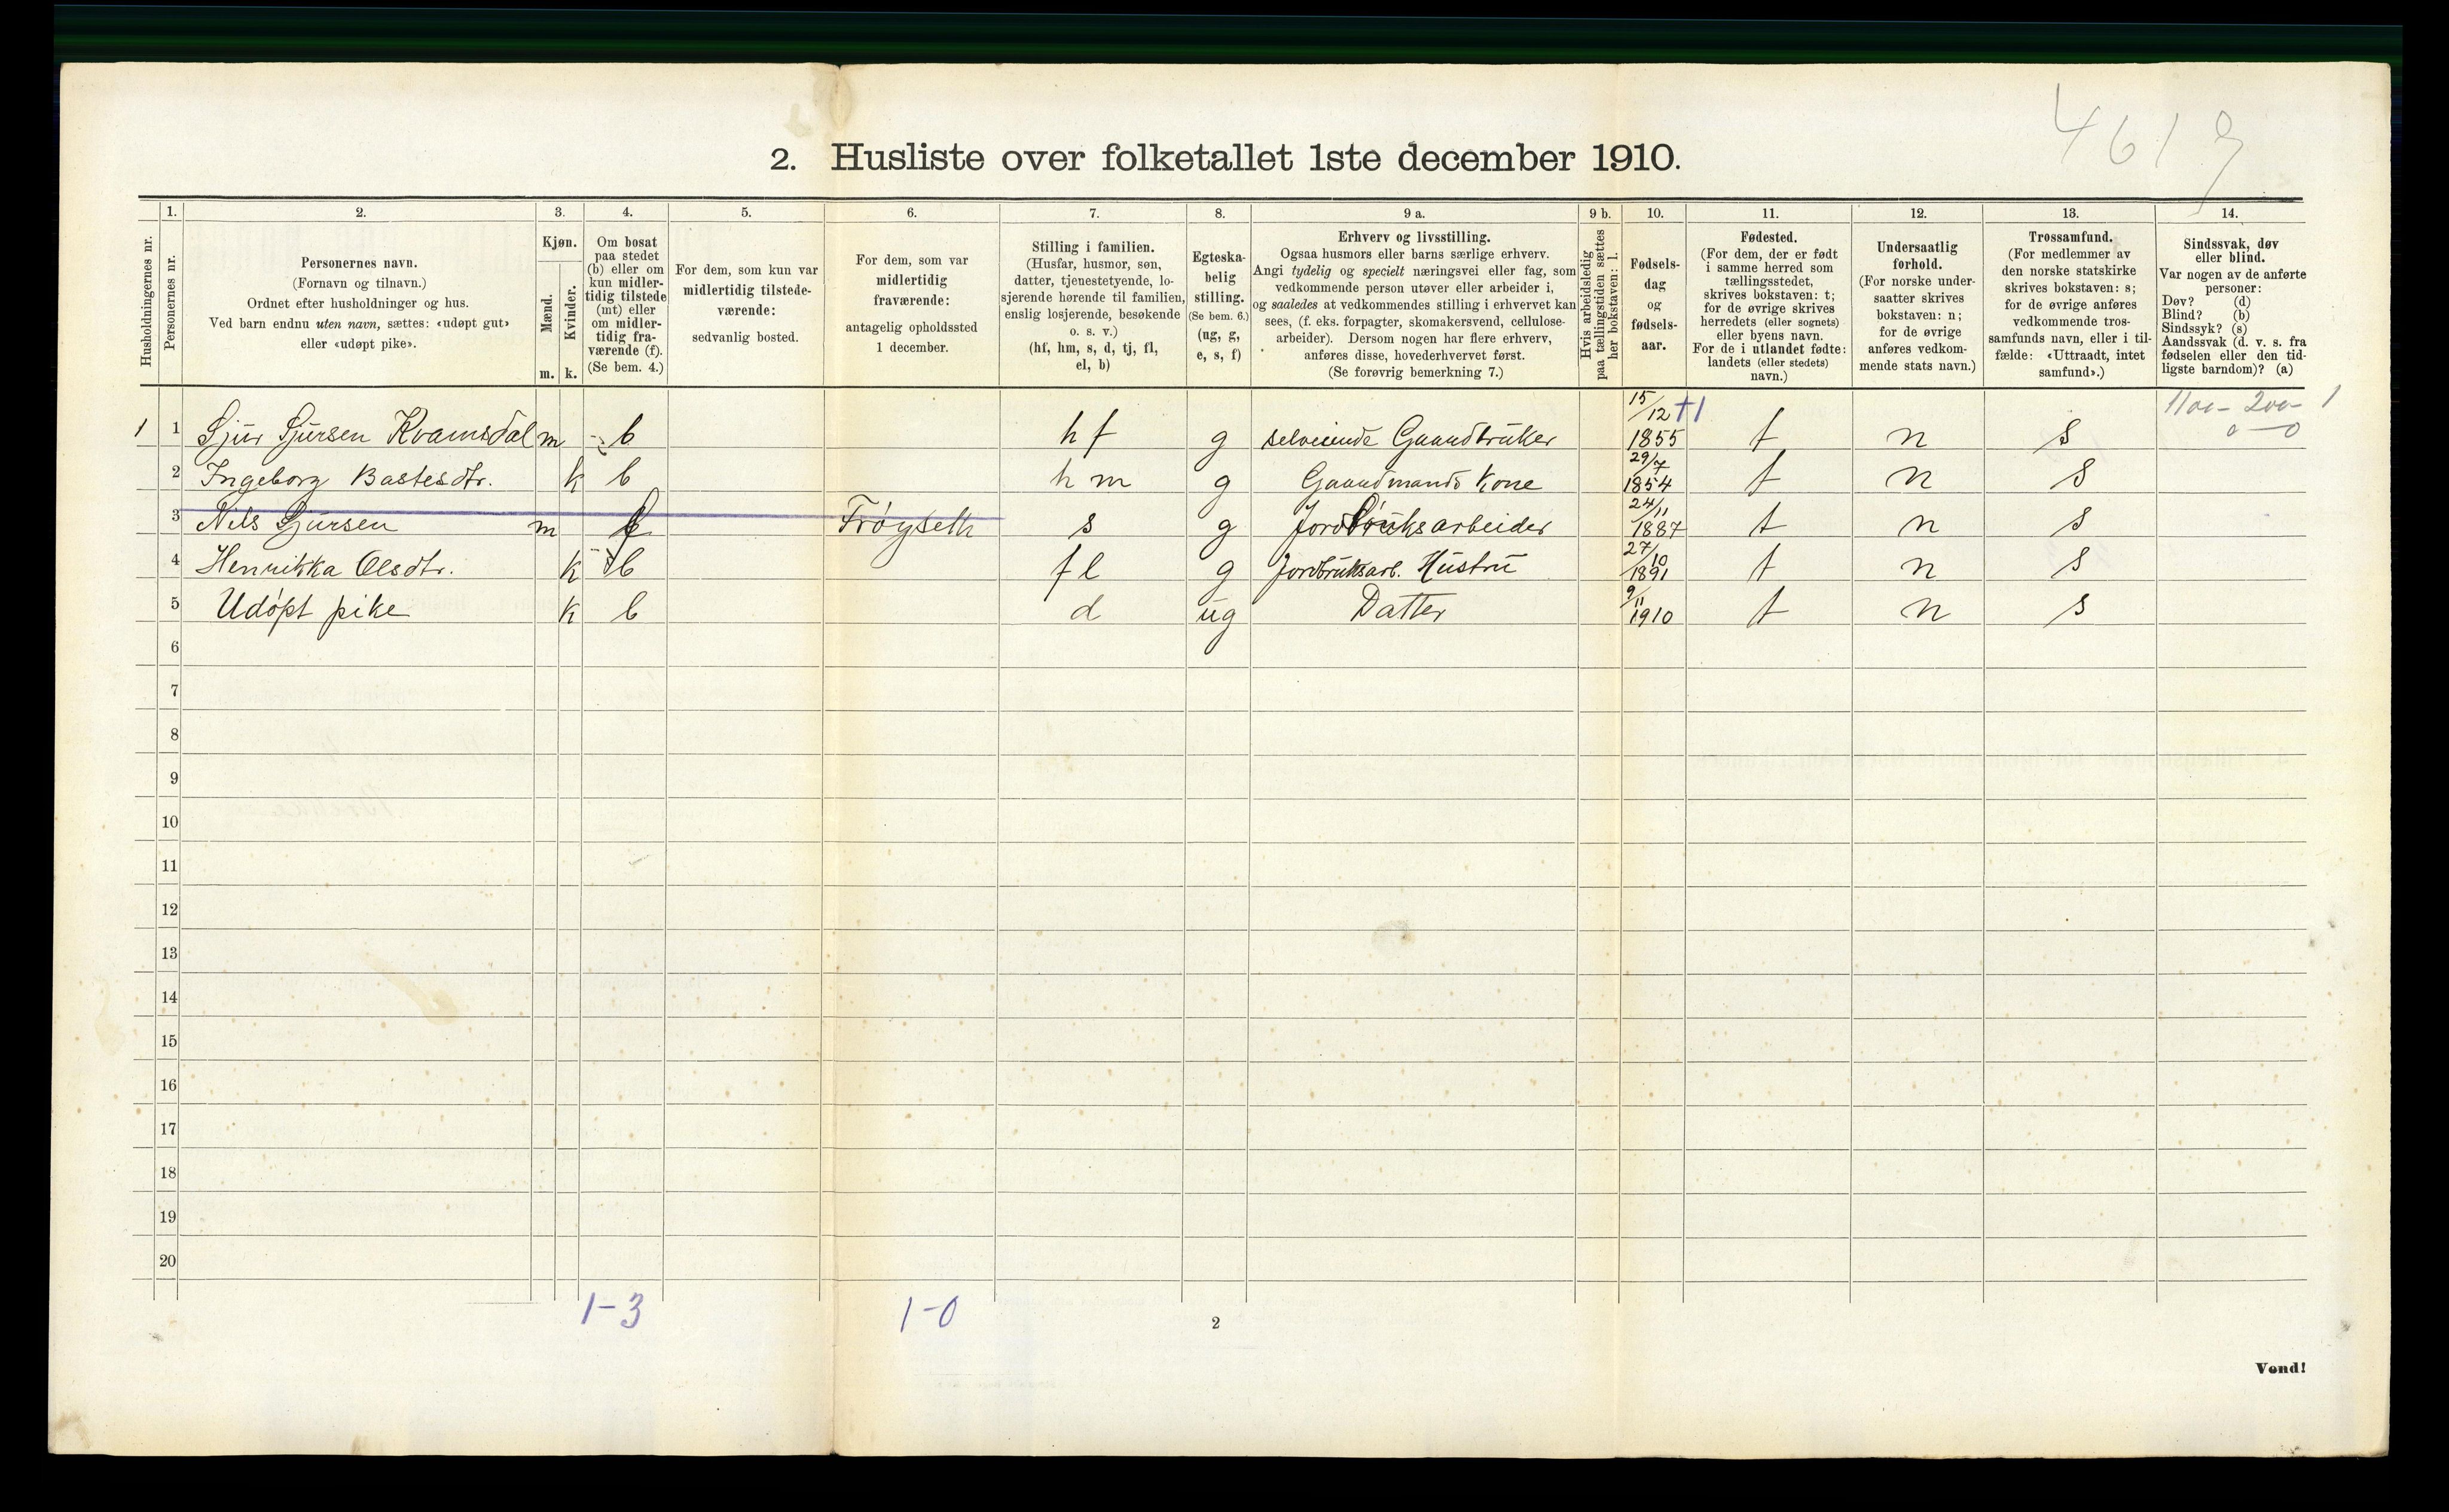 4619
2. Husliste over folketallet 1ste december 1910.
Husholdningernes nr.
1. Personernes nr.
2. Personernes navn.
(Fornavn og tilnavn.)
Ordnet efter husholdninger og hus.
Ved barn endnu uten navn, sættes: «udøpt gut»
eller «udøpt pike».
3. Kjøn.
Mænd. m.
Kvinder. k.
4. Om bosat
paa stedet
(b) eller om
kun midler-
tidig tilstede
(mt) eller
om midler-
tidig fra-
værende (f).
(Se bem. 4.)
5. For dem, som kun var
midlertidig tilstede-
værende:
sedvanlig bosted.
6. For dem, som var
midlertidig
fraværende:
antagelig opholdssted
1 december.
7. Stilling i familien.
(Husfar, husmor, søn,
datter, tjenestetyende, lo-
sjerende hørende til familien,
enslig losjerende, besøkende
o. s. v.)
(hf, hm, s, d, tj, fl,
el, b)
8. Egteska-
belig
stilling.
(Se bem. 6.)
(ug, g,
e, s, f)
9 a. Erhverv og livsstilling.
Ogsaa husmors eller barns særlige erhverv.
Angi tydelig og specielt næringsvei eller fag, som
vedkommende person utøver eller arbeider i,
og saaledes at vedkommendes stilling i erhvervet kan
sees, (f. eks. forpagter, skomakersvend, cellulose-
arbeider). Dersom nogen har flere erhverv,
anføres disse, hovederhvervet først.
(Se forøvrig bemerkning 7.)
9 b. Hvis arbeidsledig
paa tællingstiden sættes
her bokstaven: l.
10. Fødsels-
dag
og
fødsels-
aar.
11. Fødested.
(For dem, der er født
i samme herred som
tællingsstedet,
skrives bokstaven: t;
for de øvrige skrives
herredets (eller sognets)
eller byens navn.
For de i utlandet fødte:
landets (eller stedets)
navn.)
12. Undersaatlig
forhold.
(For norske under-
saatter skrives
bokstaven: n;
for de øvrige
anføres vedkom-
mende stats navn.)
13. Trossamfund.
(For medlemmer av
den norske statskirke
skrives bokstaven: s;
for de øvrige anføres
vedkommende tros-
samfunds navn, eller i til-
fælde: «Uttraadt, intet
samfund».)
14. Sindssvak, døv
eller blind.
Var nogen av de anførte
personer:
Døv? (d)
Blind? (b)
Sindssyk? (s)
Aandssvak (d. v. s. fra
fødselen eller den tid-
ligste barndom)? (a)
1100 - 200 - 1
0 - 0
1 1 Sjur Sjursen Kvamsdal m b h f g selveiende Gaardbruker 15/12 1855 +1 t n s
2 Ingeborg Bastesdtr. k b h m g Gaardmands Kone 29/7 1854 t n s
3 Nils Sjursen m f Frøyseth s g Jordbruksarbeider 24/11 1887 t n s
4 Henrikka Olsdtr. k b f l g Jordbruksarb. Hustru 27/10 1891 t n s
5 Udøpt pike k b d ug Datter 9/11 1910 t n s
6
7
8
9
10
11
12
13
14
15
16
17
18
19
20
1-3 1-0
2
Vend!